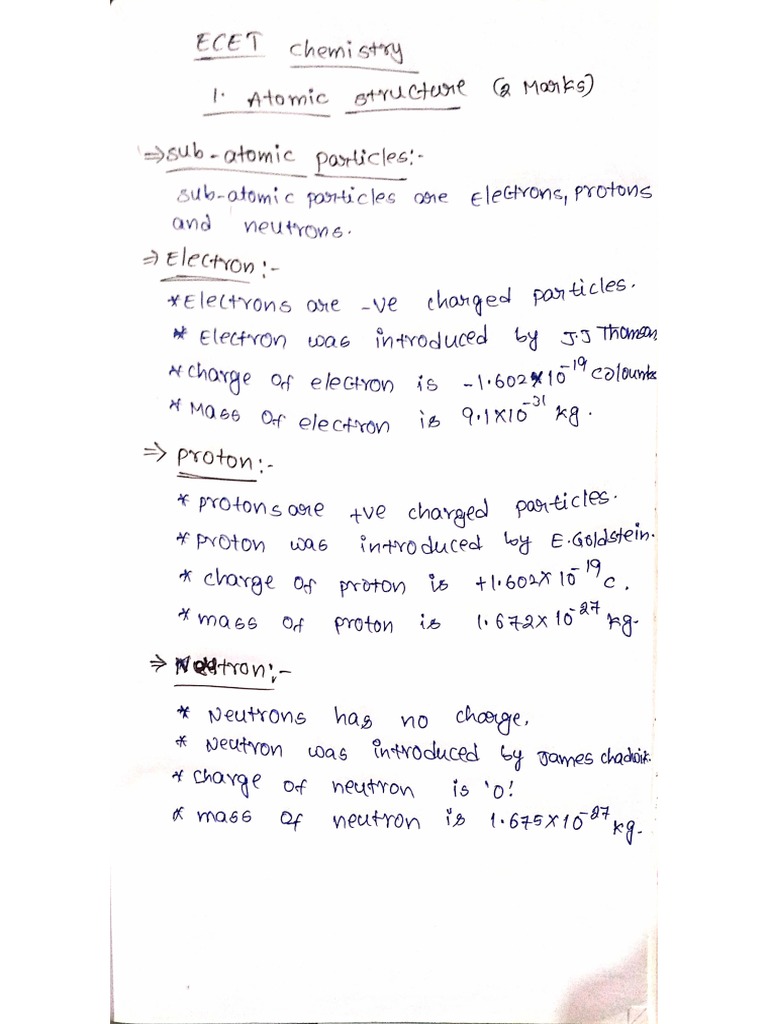 ECET Chemistry
1. Atomic structure (2 Marks)
⇒sub-atomic particles:-
sub-atomic particles are Electrons, protons
and neutrons.
⇒Electron:-
*Electrons are -ve charged particles.
* Electron was introduced by J.J Thomson
* charge of electron is -1.602×10⁻¹⁹ Colounks
* Mass of electron is 9.1×10⁻³¹ kg.
⇒ proton:-
* protons are +ve charged particles.
* proton was introduced by E.Goldstein.
* charge of proton is +1.602×10⁻¹⁹ c.
* mass of proton is 1.672×10⁻²⁷ kg.
⇒ Neutron:-
* Neutrons has no charge.
* Neutron was introduced by James chadwik.
* charge of neutron is '0'.
* mass of neutron is 1.675×10⁻²⁷ kg.